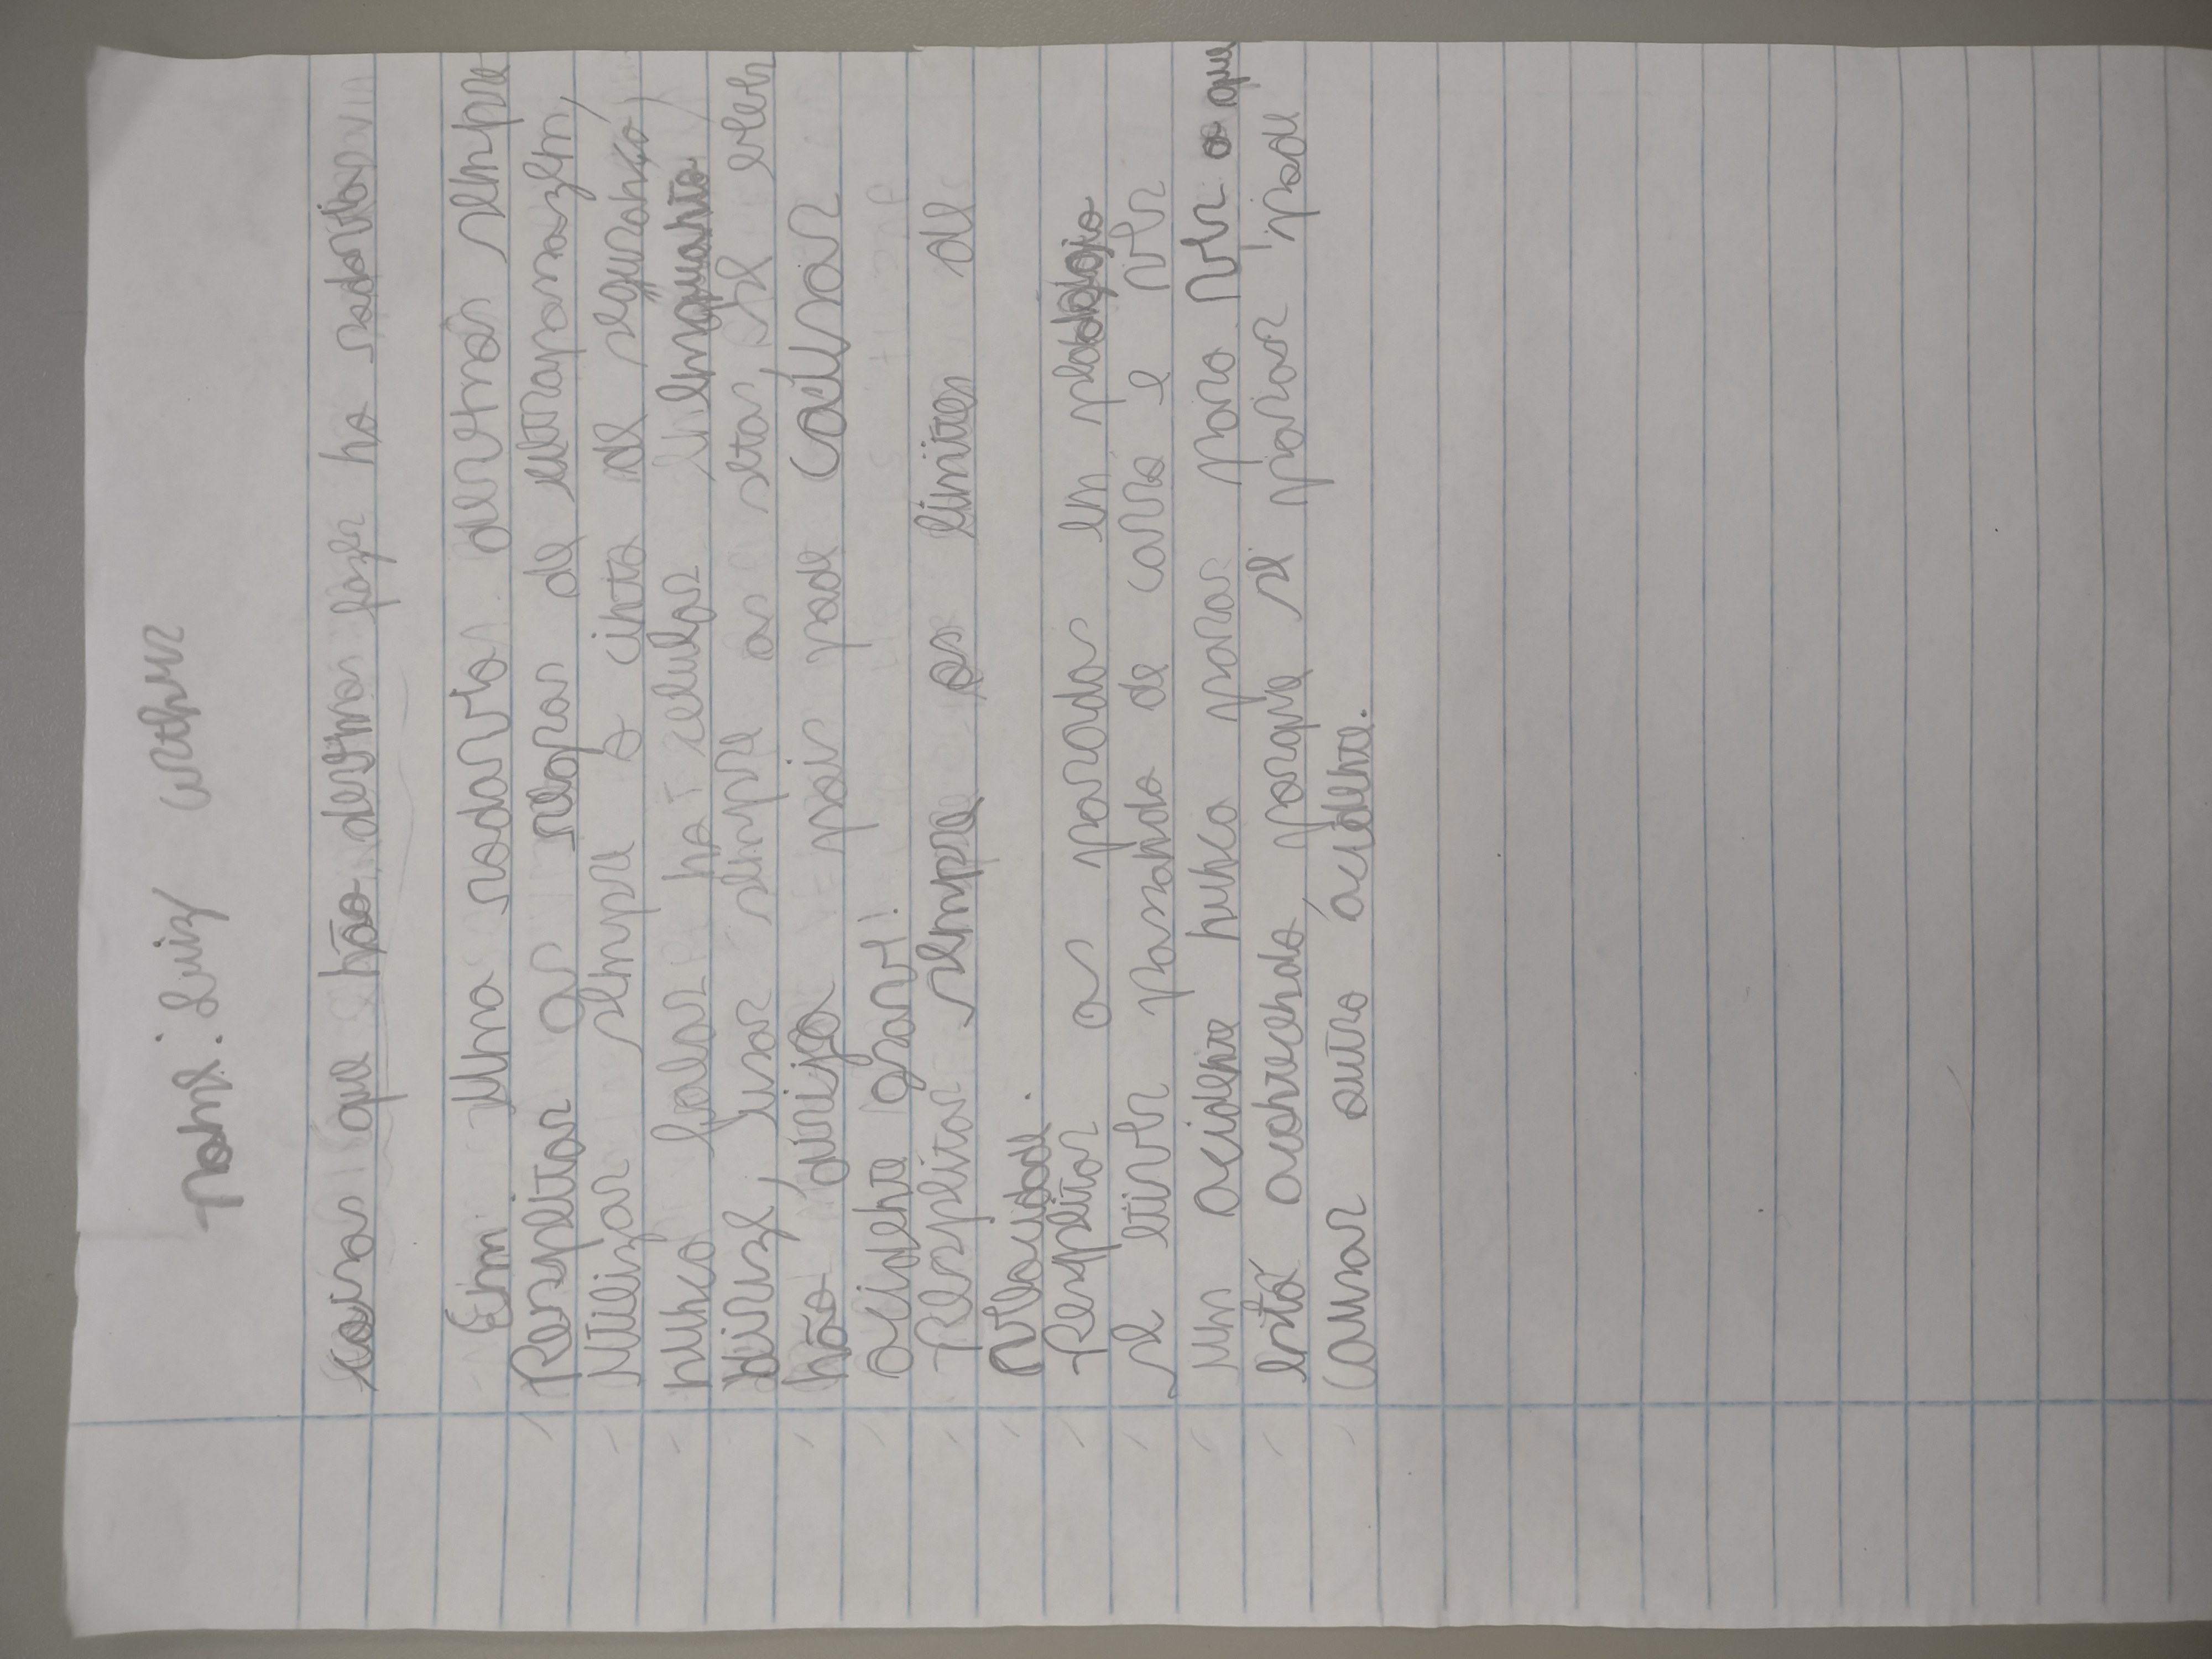 Nome: Luiz Arthur
coisas que não devemos fazer na rodovia
Em uma rodovia devemos sempre
Respeitar as regras de ultrapassagem,
Utilizar sempre o cinto de segurança,
nunca falar no celular enquanto
dirize, usar sempre as setas, se beber
não dirija pois pode caúsar
acidente grave!
Respeitar sempre os limites de
Velocidade.
Respeitar as paradas em pedagio
se tiver passando de carro e ver
um acidente nunca parar para ver o que
está acontecendo, porque se parar pode
causar outro acidente.